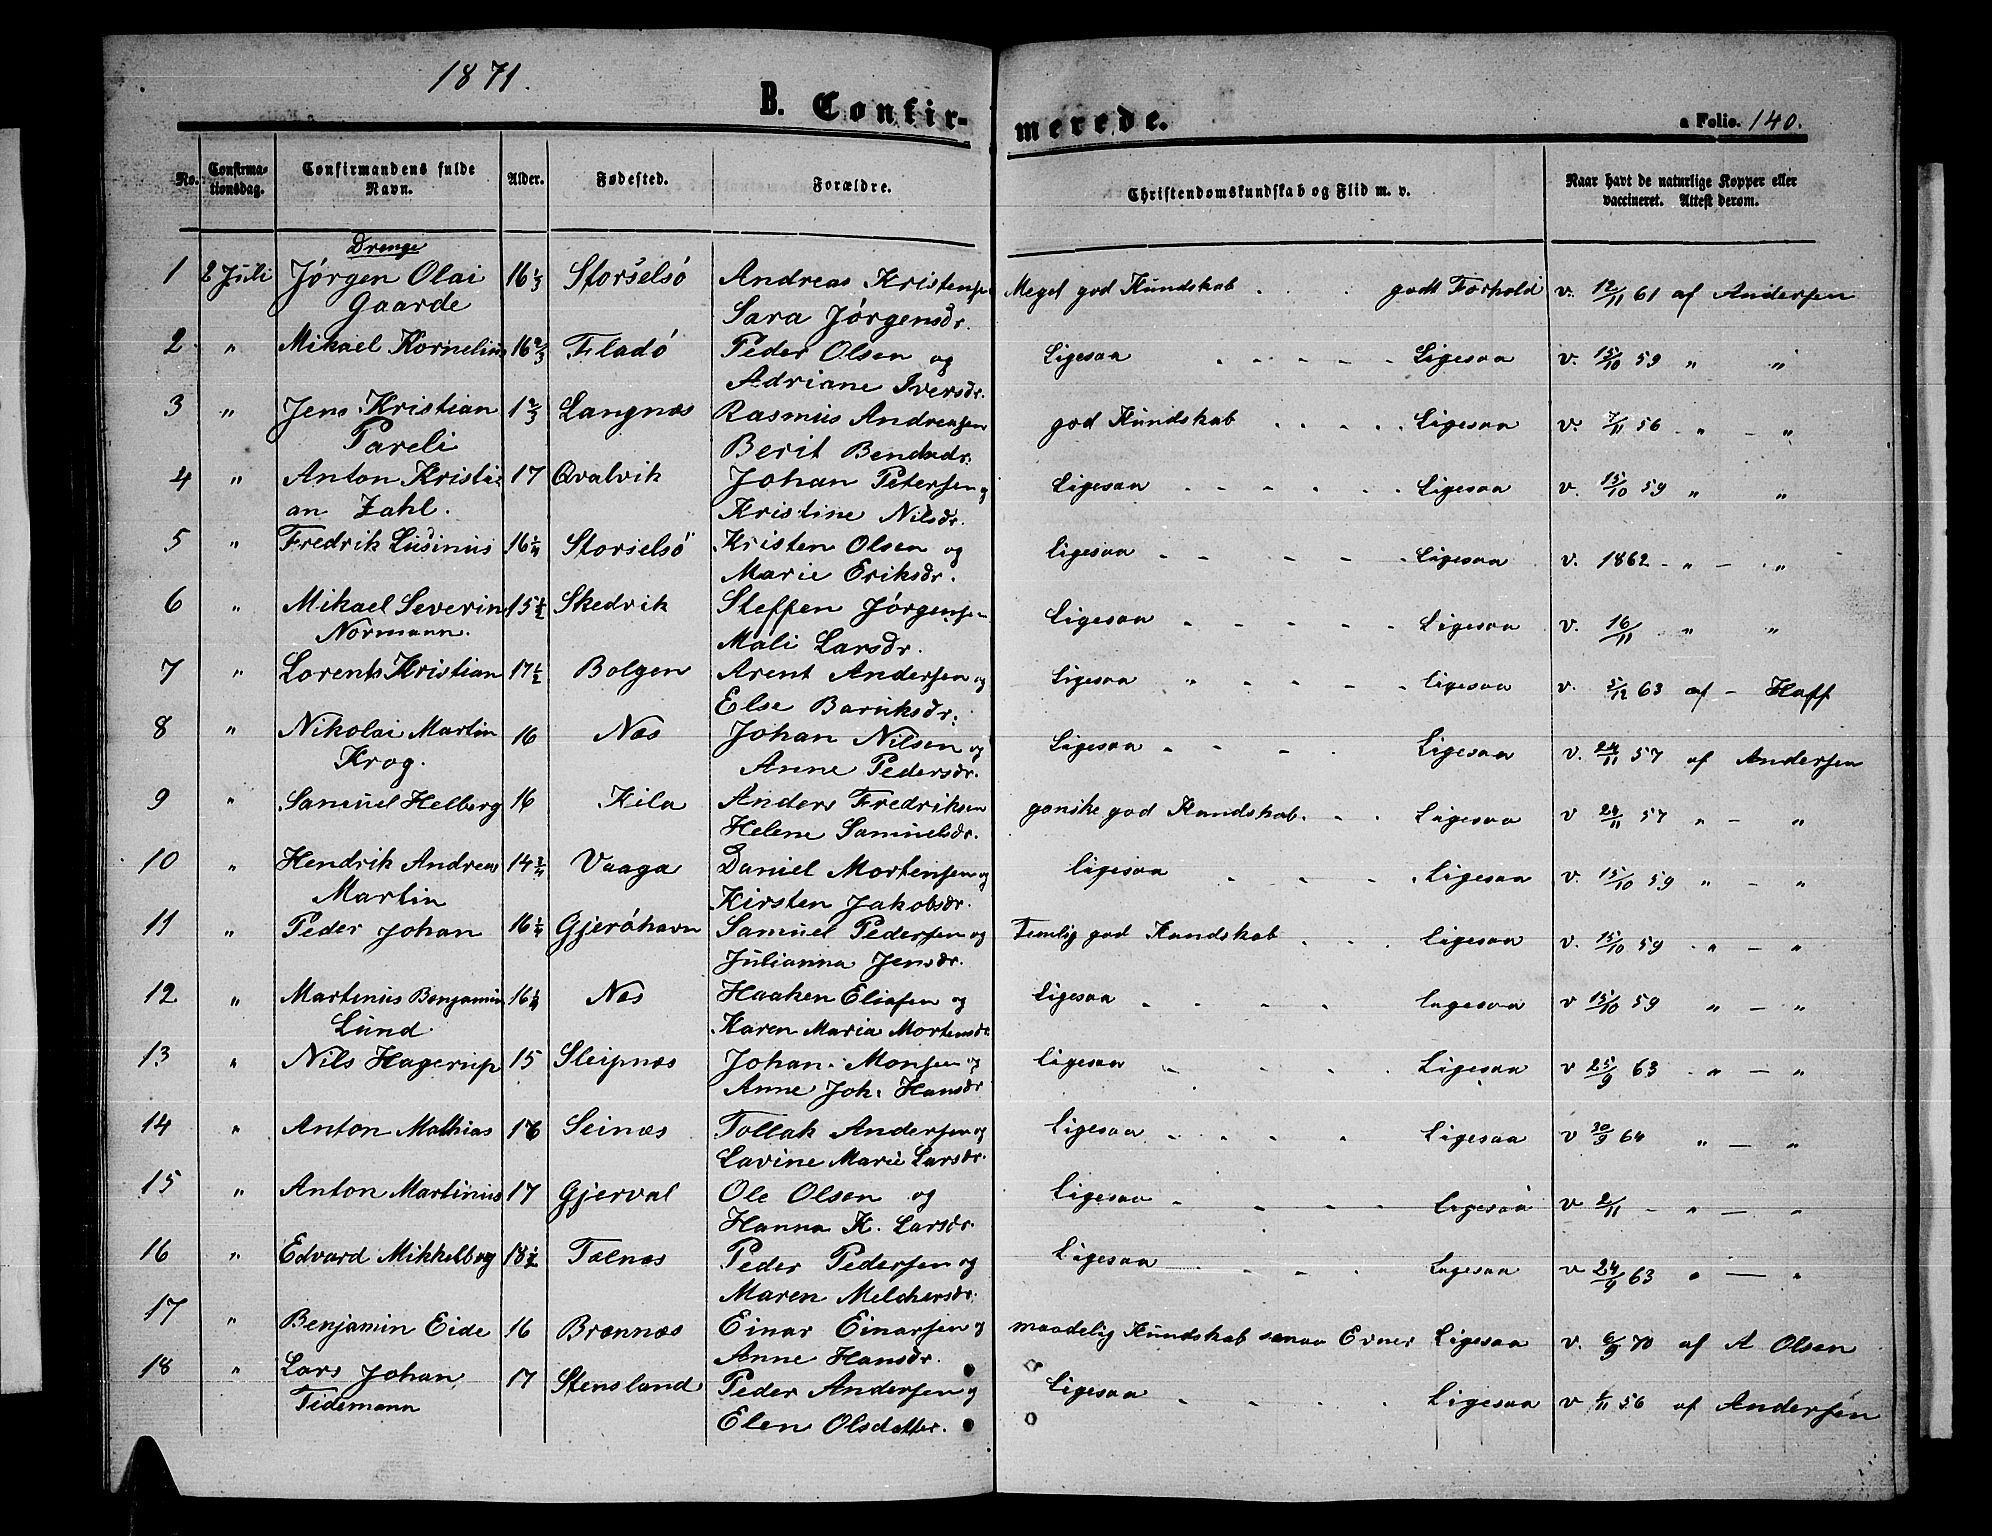 1871.
B. Confirmerede.
a Folio. 140.
No. Confirmationsdag. Confirmandens fulde Navn. Alder. Fødested. Forældre. Christendomskundskab og Flid m. v. Naar havt de naturlige Kopper eller vaccineret. Attest derom.
Drenge
1 2 Juli Jørgen Olai 16 1/3 Storselsö Andreas Kristensen Meget god Kundskab . . . godt Forhold v. 12/11 61 af Andersen
Gaarde Sara Jørgensdr.
2 " Mikael Kornelius 16 2/3 Fladö Peder Olsen og Ligesaa - - - - - Ligesaa v. 15/10 59 " "
Adriane Iversdr.
3 " Jens Kristian 1 2/3 Langnæs Rasmus Andreasen god Kundskab . . . . Ligesaa v. 7/11 56 - " - "
Pareli Berit Bendsdr.
4 " Anton Kristi- 17 Qvalvik Johan Petersen og Ligesaa - - - - - Ligesaa v. 15/10 59 " "
an Zahl. Kristine Nilsdr.
5 " Fredrik Lusinus 16 1/4 Storselsö Kristen Olsen og Ligesaa - - - - - Ligesaa v. 1862 - " - "
Marie Eriksdr.
6 " Mikael Severin 15 1/2 Skedvik Steffen Jørgensen Ligesaa - - - - - Ligesaa v. 16/11 " "
Normann. Mali Larsdr.
7 " Lorents Kristian 17 1/2 Bolgen Arent Andersen og Ligesaa " - - - - Ligesaa v. 5/12 63 af - Haff
Else Baruksdr.
8 " Nikolai Martin 16 Næs Johan Nilsen og Ligesaa - - - . Ligesaa v. 24/11 57 af Andersen
Krog. Anne Pedersdr.
9 " Samuel Helberg 16 Kila Anders Fredriksen ganske god Kundskab. . . Ligesaa v 24/11 57 " - "
Helene Samuelsdr.
10 " Hendrik Andreas 14 3/4 Vaaga Daniel Mortensen og Ligesaa - - - - Ligesaa v. 15/10 59 " - "
Martin Kirsten Jakobsdr.
11 " Peder Johan 16 1/4 Gjeröhavn Samuel Pedersen og Temlig god Kundskab . . . Ligesaa v. 15/10 59 " - "
Julianna Jensdr.
12 " Martinus Benjamin 16 1/2 Næs Haaken Eliasen og Ligesaa - - - - Ligesaa v 15/10 59 " - "
Lund. Karen Maria Mortensdr.
13 " Nils Hagerup 15 Sleipnæs Johan Monsen og Ligesaa - - - - Ligesaa v 25/9 63 - " - "
Anne Joh. Hansdr
14 " Anton Mathias 16 Seinæs Tollak Andersen og Ligesaa - - - - Ligesaa v 30/9 64 " - "
Lavine Marie Larsdr.
15 " Anton Martinus 17 Gjerval Ole Olsen og Ligesaa - - - - Ligesaa v 2/11 - " - "
Hanna K. Larsdr.
16 " Edvard Mikkelborg 18 1/2 Tælnæs Peder Pedersen og Ligesaa - - - - Ligesaa v 24/9 63 " - "
Maren Melchersdr.
17 " Benjamin Eide 16 Brennæs Einar Einarsen og maadelig Kundskab smaa Evner Ligesaa v. 6/9 70 af A Olsen
Anne Hansdr.
18 " Lars Johan 17 Stensland Peder Andersen og Ligesaa - - - - Ligesaa v /11 56 af Andersen
Tidemann Elen Olsdatter.